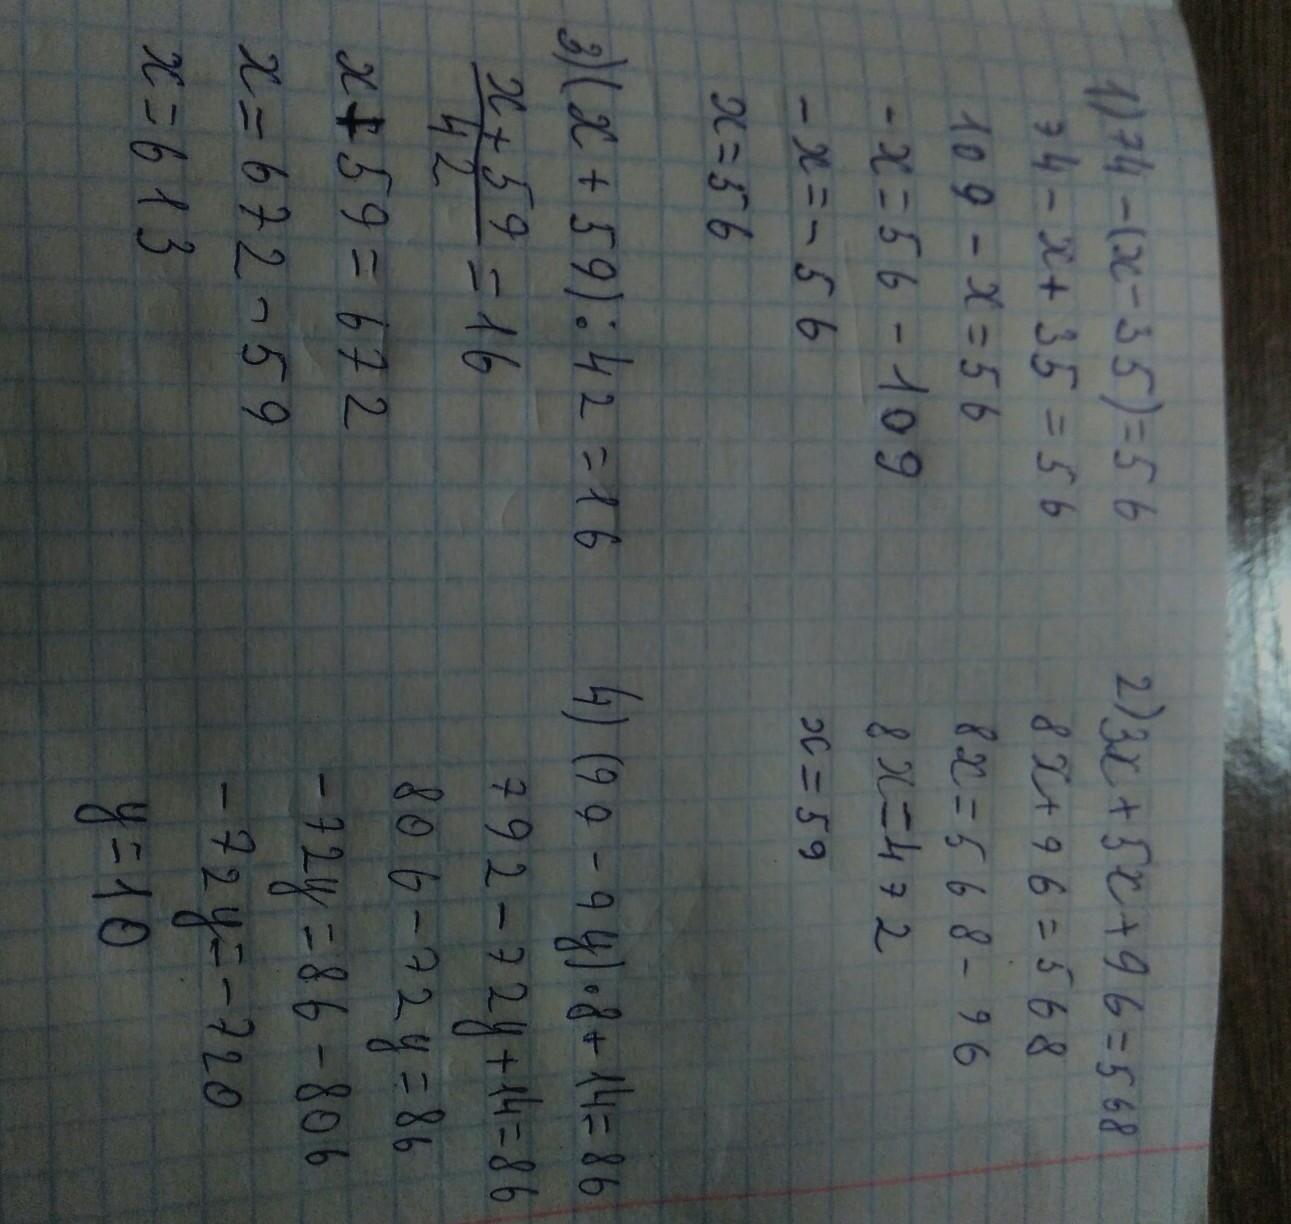 1) 74 - (x - 35) = 56
74 - x + 35 = 56
109 - x = 56
- x = 56 - 109
- x = - 56
x = 56
2) 3x + 5x + 96 = 568
8x + 96 = 568
8x = 568 - 96
8x = 472
x = 59
3) (x + 59) : 42 = 16
x + 59
42
= 16
x + 59 = 672
x = 672 - 59
x = 613
4) (99 - 9y) · 8 + 14 = 86
792 - 72y + 14 = 86
806 - 72y = 86
- 72y = 86 - 806
- 72y = - 720
y = 10